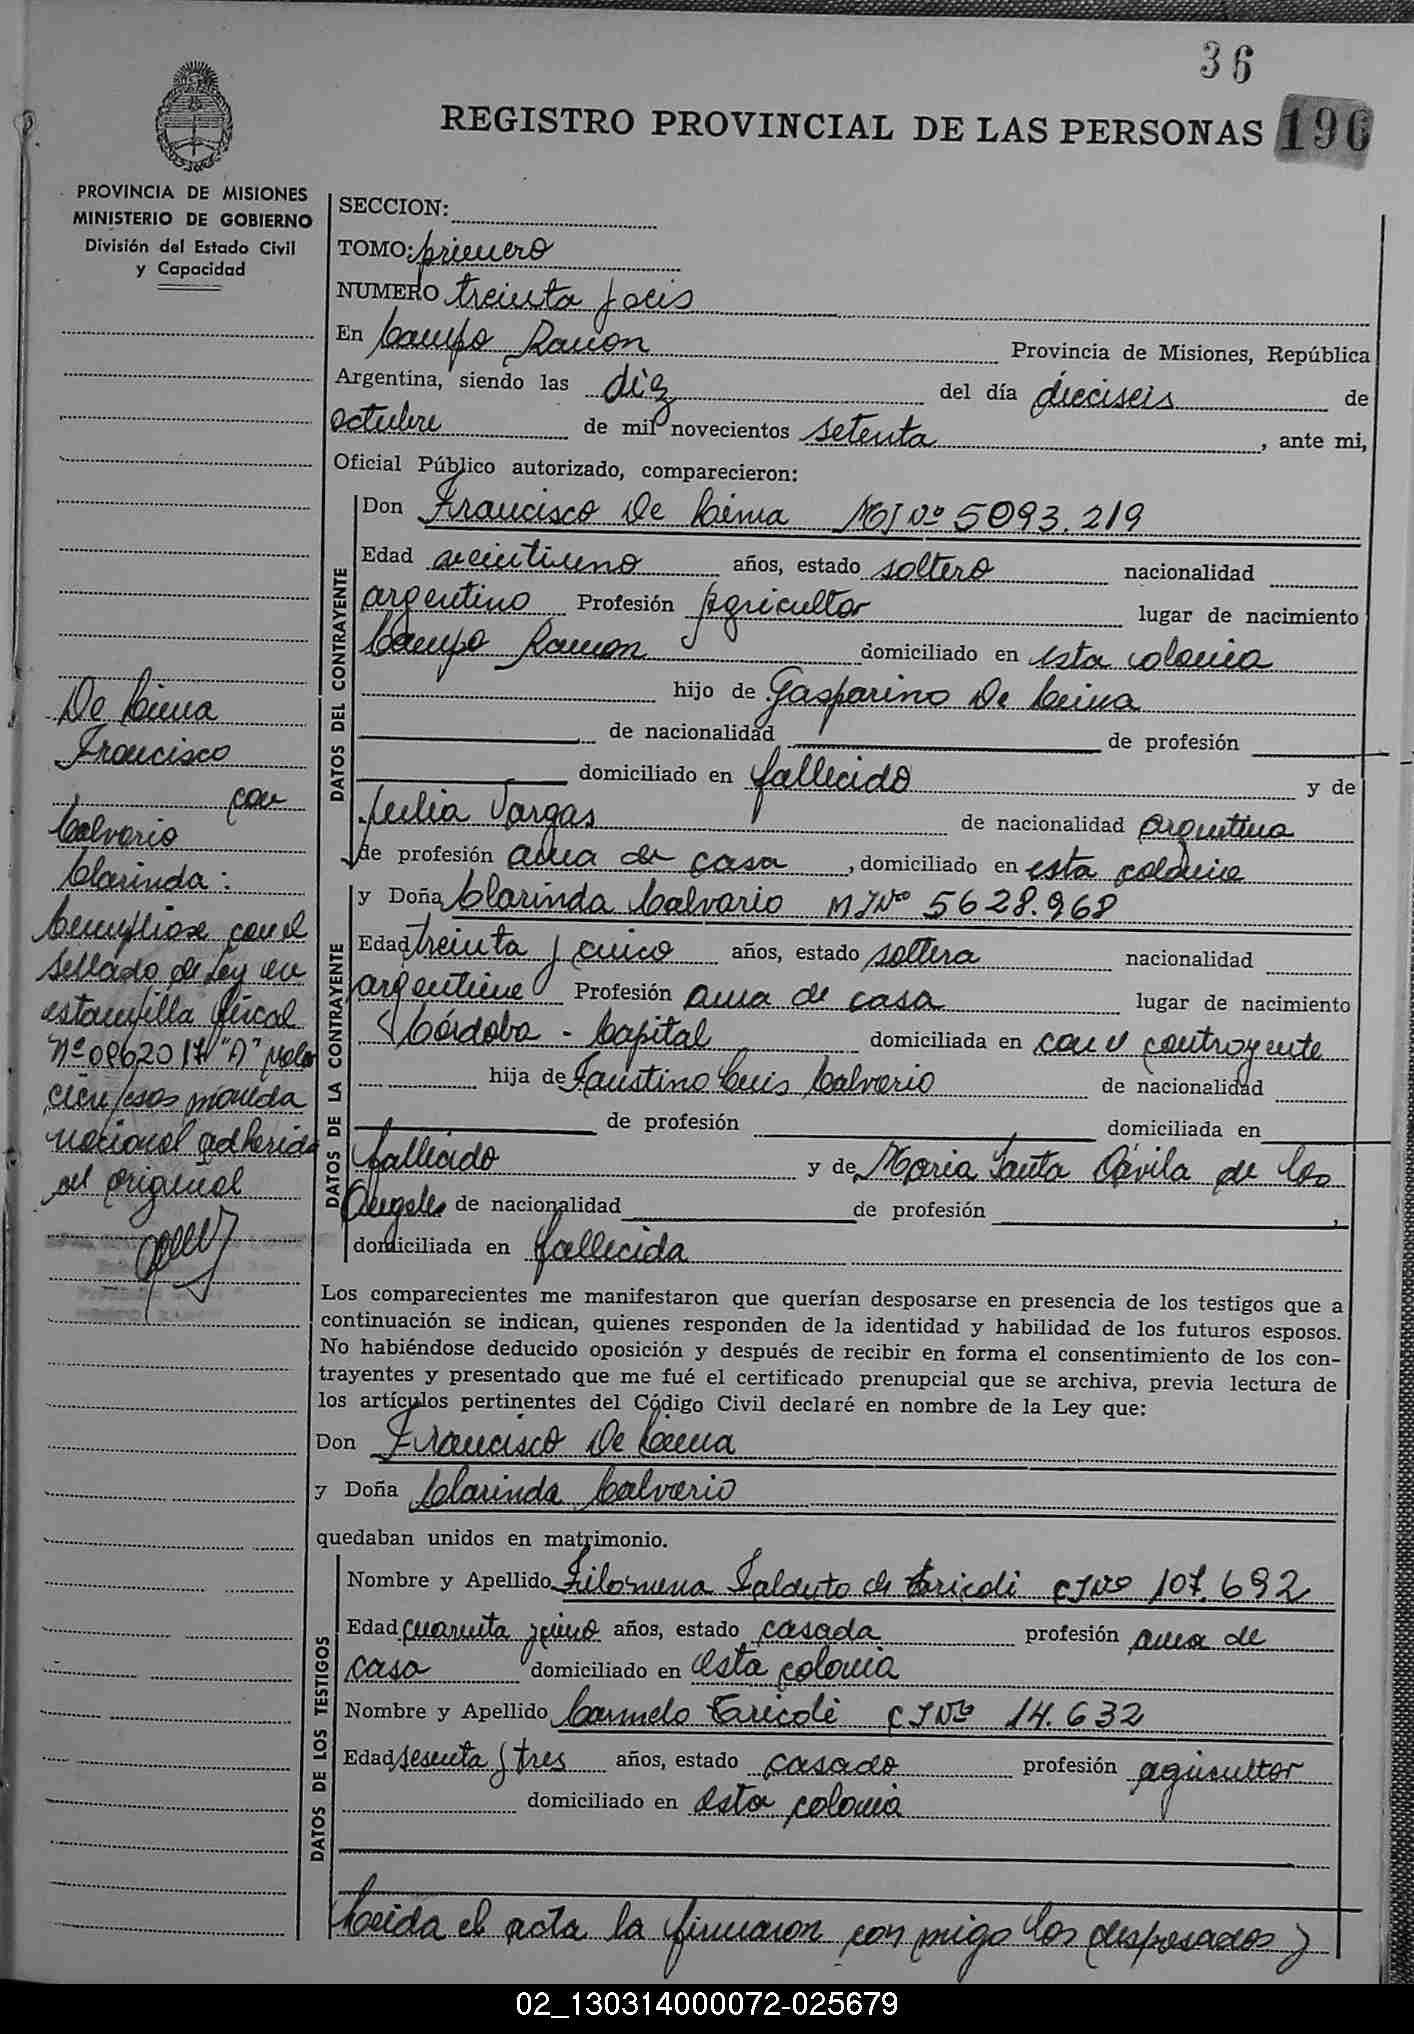 36
REGISTRO PROVINCIAL DE LAS PERSONAS 196
PROVINCIA DE MISIONES
MINISTERIO DE GOBIERNO
División del Estado Civil
y Capacidad
SECCION:
TOMO: primero
NUMERO treinta y seis
En Campo Ramon Provincia de Misiones, República
Argentina, siendo las diez del día dieciseis de
octubre de mil novecientos setenta, ante mi,
Oficial Público autorizado, comparecieron:
DATOS DEL CONTRAYENTE
Don Francisco De Lima MI Nº 5093.219
Edad veintiuno años, estado soltero nacionalidad
argentino Profesión Agricultor lugar de nacimiento
Campo Ramon domiciliado en esta colonia
hijo de Gasparino De Lima
de nacionalidad de profesión
domiciliado en fallecido y de
Julia Vargas de nacionalidad argentina
de profesión ama de casa, domiciliado en esta colonia
DATOS DE LA CONTRAYENTE
y Doña Clarinda Calvario MI Nº 5628.968
Edad treinta y cinco años, estado soltera nacionalidad
argentina Profesión ama de casa lugar de nacimiento
Córdoba - Capital domiciliada en con el contrayente
hija de Faustino Luis Calvario de nacionalidad
de profesión domiciliada en
fallecido y de Maria Santa Avila de los
Angeles de nacionalidad de profesión
domiciliada en fallecida
De Lima
Francisco
con
Calvario
Clarinda:
Cumpliose con el
sellado de Ley en
estampilla fiscal
Nº 0862017 "A" valor
cien pesos moneda
nacional adherida
al original
Los comparecientes me manifestaron que querían desposarse en presencia de los testigos que a
continuación se indican, quienes responden de la identidad y habilidad de los futuros esposos.
No habiéndose deducido oposición y después de recibir en forma el consentimiento de los con-
trayentes y presentado que me fué el certificado prenupcial que se archiva, previa lectura de
los artículos pertinentes del Código Civil declaré en nombre de la Ley que:
Don Francisco De Lima
y Doña Clarinda Calvario
quedaban unidos en matrimonio.
DATOS DE LOS TESTIGOS
Nombre y Apellido Filomena Falduto de Taricoli CI Nº 107.692
Edad cuarenta y cinco años, estado casada profesión ama de
casa domiciliado en esta colonia
Nombre y Apellido Carmelo Taricoli CI Nº 14.632
Edad sesenta y tres años, estado casado profesión agricultor
domiciliado en esta colonia
Leida el acta la firmaron con migo los desposados y
02_130314000072-025679